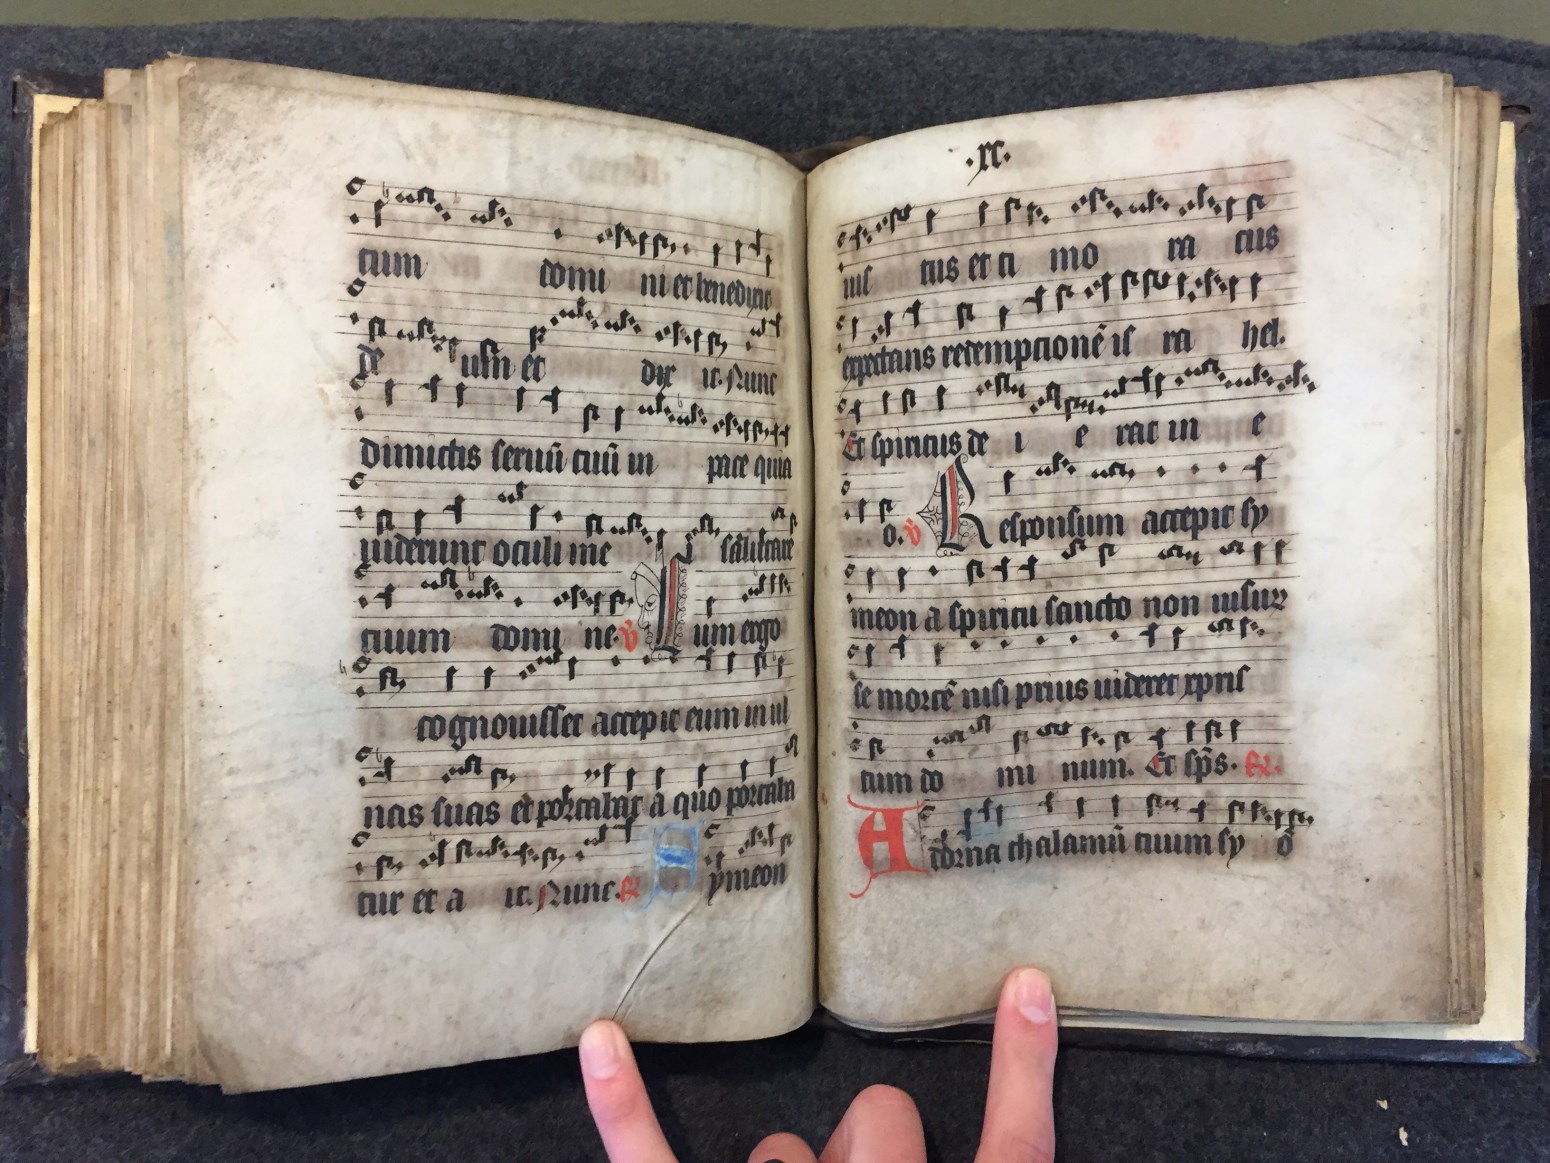 tum domi ni et benedixit
de usm et dix it. Nunc
dimictis seruū tuū in pace quia
uiderunt oculi me i salutare
tuum domi ne. v̇ Cum ergo
cognouisset accepit eum in ul
nas suas et portabat a quo portaba
tur et a it. Nunc. R. Symeon
.xc.
ius tus et ti mo ra tus
expectans redemptionē is ra hel.
Et spiritus de i e rat in e
o. v̇ Responsum accepit sy
meon a spiritu sancto non uisur
se mortē nisi prius uideret xpris
tum do mi num. Et sp̄s. R.
Adorna thalamū tuum sy ō